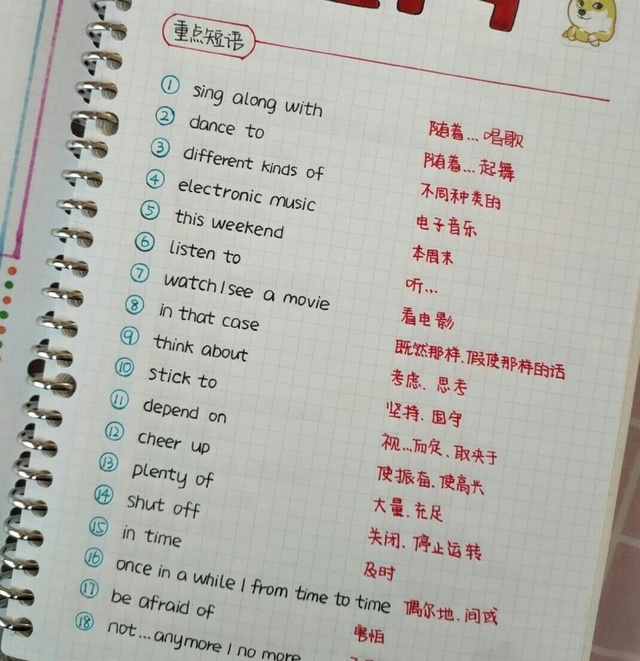 重点短语
① sing along with 随着...唱歌
② dance to 随着...起舞
③ different kinds of 不同种类的
④ electronic music 电子音乐
⑤ this weekend 本周末
⑥ listen to 听...
⑦ watch / see a movie 看电影
⑧ in that case 既然那样、假使那样的话
⑨ think about 考虑、思考
⑩ stick to 坚持、固守
⑪ depend on 视...而定、取决于
⑫ cheer up 使振奋、使高兴
⑬ plenty of 大量、充足
⑭ shut off 关闭、停止运转
⑮ in time 及时
⑯ once in a while / from time to time 偶尔地、间或
⑰ be afraid of 害怕
⑱ not...anymore / no more